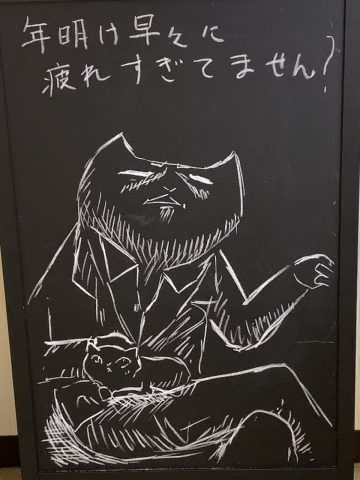 年明け早々に
疲れすぎてません?